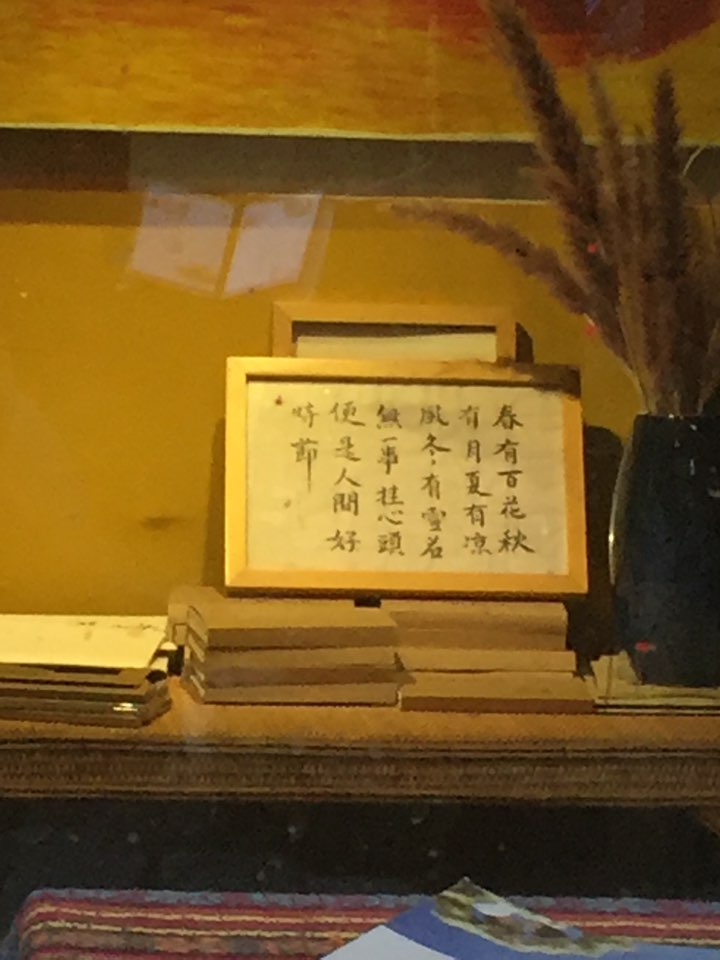 春有百花秋
有月夏有凉
風冬有雪若
無一事挂心頭
便是人間好
時節